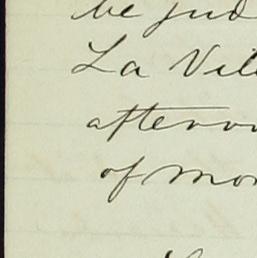 be jud
La Vil
afternoo
of mon